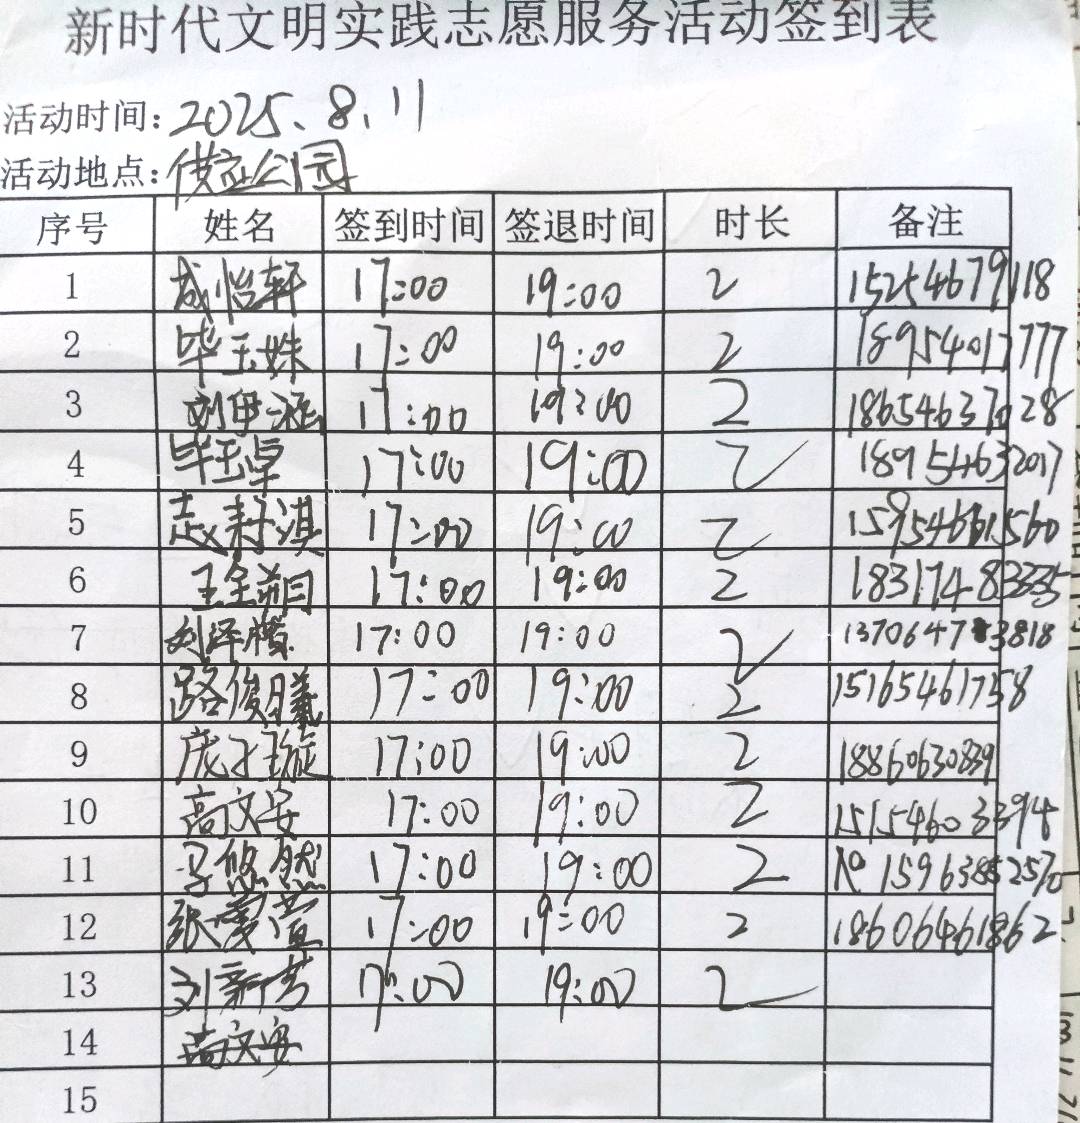 新时代文明实践志愿服务活动签到表
活动时间：2025.8.11
活动地点：公园
序号 姓名 签到时间 签退时间 时长 备注
1 成怡轩 17:00 19:00 2 15254679118
2 毕玉姝 17:00 19:00 2 18954017777
3 刘伊涵 17:00 19:00 2 18654637028
4 毕玉卓 17:00 19:00 2 18954632017
5 淇 17:00 19:00 2 15954661560
6 王全朔 17:00 19:00 2 18317483335
7 刘泽腾 17:00 19:00 2 13706473818
8 路俊曦 17:00 19:00 2 15165461758
9 庞子璇 17:00 19:00 2 18860630839
10 高文安 17:00 19:00 2 15154603394
11 悠然 17:00 19:00 2 15963852570
12 张萱 17:00 19:00 2 18606461862
13 刘新艺 17:00 19:00 2
14 高文安
15